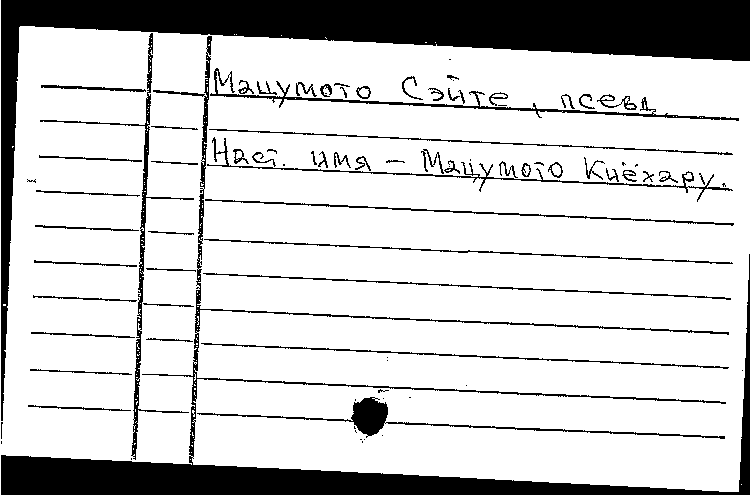 Мацумото Сэйте, псевд.
Наст. имя – Мацумото Киёхару.